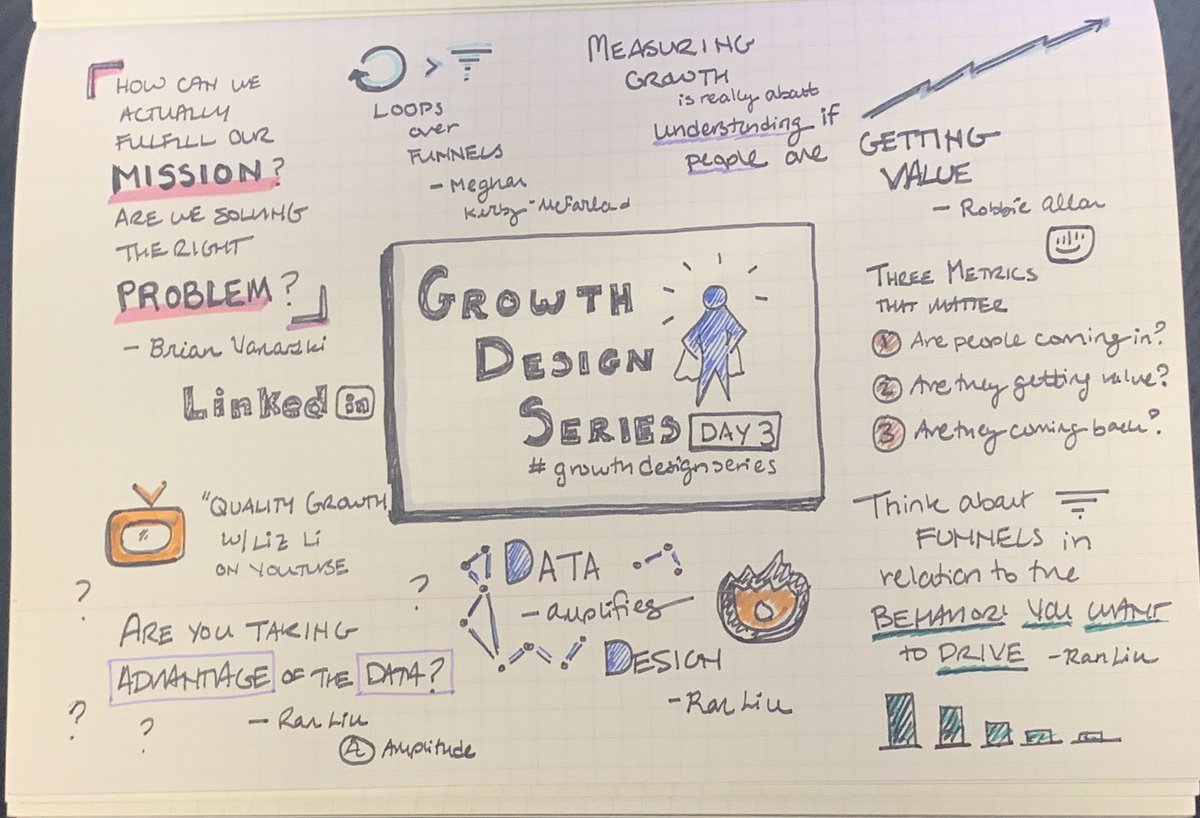 HOW CAN WE
ACTUALLY
FULFILL OUR
MISSION?
ARE WE SOLVING
THE RIGHT
PROBLEM?
- Brian
Linked in
>
LOOPS
over
FUNNELS
- Meghan
MEASURING
GROWTH
is really about
understanding if
people are
GETTING
VALUE
- Robbie Allan
THREE METRICS
THAT MATTER
1 Are people coming in?
2 Are they getting value?
3 Are they coming back?
GROWTH
DESIGN
SERIES DAY 3
#growthdesignseries
"QUALITY GROWTH
W/ LIZ LI
ON YOUTUBE
? ?
ARE YOU TAKING
ADVANTAGE OF THE DATA?
- Ran Liu
A Amplitude
? ?
DATA
- amplifies
DESIGN
- Ran Liu
Think about
FUNNELS in
relation to the
BEHAVIOR YOU WANT
to DRIVE - Ran Liu